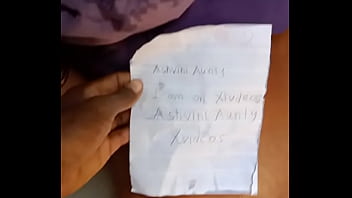 Ashvini Aunty
I am on Xvideos
Ashvini Aunty
Xvideos